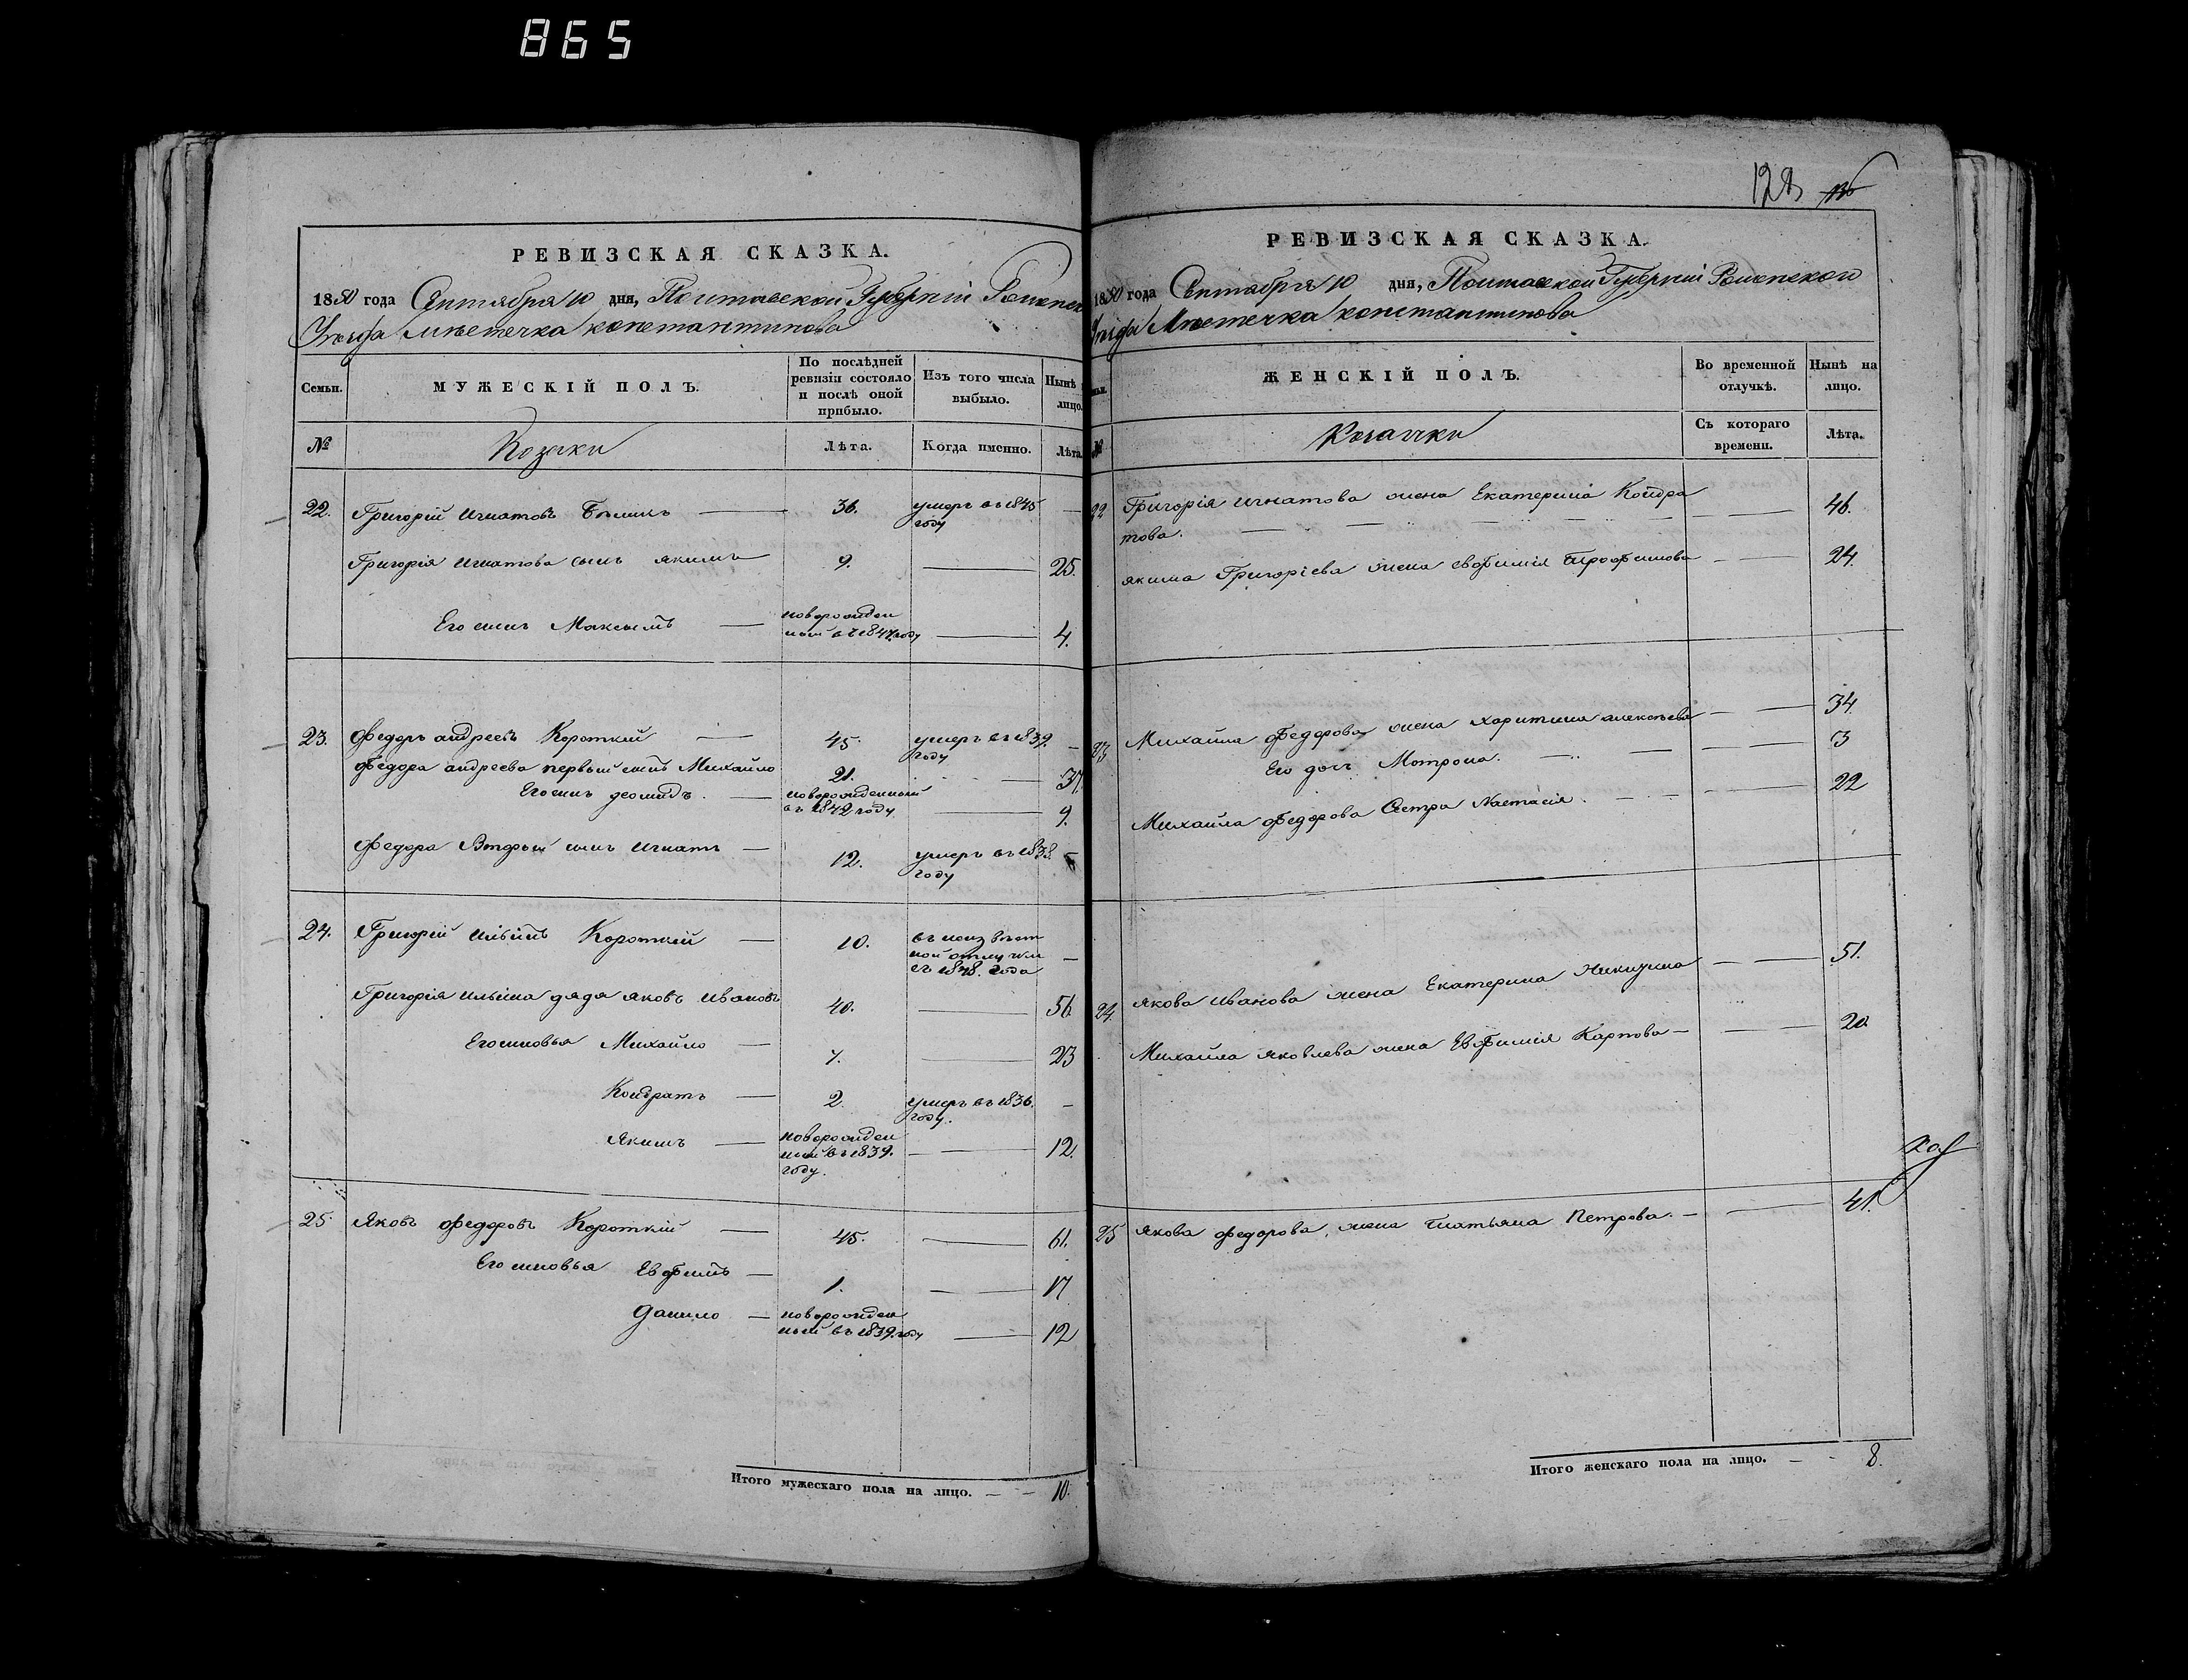 865
128
РЕВИЗСКАЯ СКАЗКА.
1850 года Сентября 10 дня, Полтавской Губерніи Роменск
Уезда местечка Константинова
Семьи.
МУЖЕСКІЙ ПОЛЪ.
По послѣдней ревизіи состояло и послѣ оной прибыло.
Изъ того числа выбыло.
Нынѣ лицо.
№
Козаки
Лѣта.
Когда именно.
Лѣта.
22. Григорій Игнатовъ — 36. умеръ въ 1845 —
году
Григорія Игнатова сынъ Якимъ 9. — 25.
Его сынъ Максымъ — новорожден
ный въ 1847 году — 4.
23. Федоръ андреевъ Короткій — 45. умеръ въ 1839. —
году
Федора андреева первый сынъ Михайло 21. — 37.
Его сынъ деомидъ. — новорожденный
въ 1842 году — 9.
Федора Вторый сынъ Игнатъ — 12. умеръ въ 1838. —
году
24. Григорій Ильинъ Короткій — 10. въ неизвѣст
ной отлучки —
съ 1848. года
Григорія Ильина дядя яковъ Ивановъ 40. — 56.
Его сыновья Михайло — 7. — 23
Кондратъ — 2. умеръ въ 1836. —
году.
Якимъ — новорожден
ный въ 1839. — 12.
году.
25. Яковъ Федоровъ Короткій — 45. — 61.
Его сыновья Евфимъ — 1. — 17
Данило — новорожден
ный въ 1839. году — 12
Итого мужескаго пола на лицо. — — 10.
РЕВИЗСКАЯ СКАЗКА.
1850 года Сентября 10 дня, Полтавской Губерніи Роменской
Уезда Местечка Константинова
ЖЕНСКІЙ ПОЛЪ.
Во временной отлучкѣ.
Нынѣ на лицо.
№
Козачки
Съ котораго времени.
Лѣта.
22 Григорія Игнатова жена Екатерина Кондра
това. — 46.
якима Григоріева жена евфимія Трофимова — 24.
23 Михайла Федорова жена Харитина алексѣева — 34.
Его дочь Мотрона. — 3
Михайла Федорова Сестра Настасія. — 22
24. Якова Иванова жена Екатерина Никитина — 51.
Михайла Яковлева жена Евфимія Карпова — 20.
25 Якова Федорова, жена Татьяна Петрова. — 41.
Итого женскаго пола на лицо. — - 8.